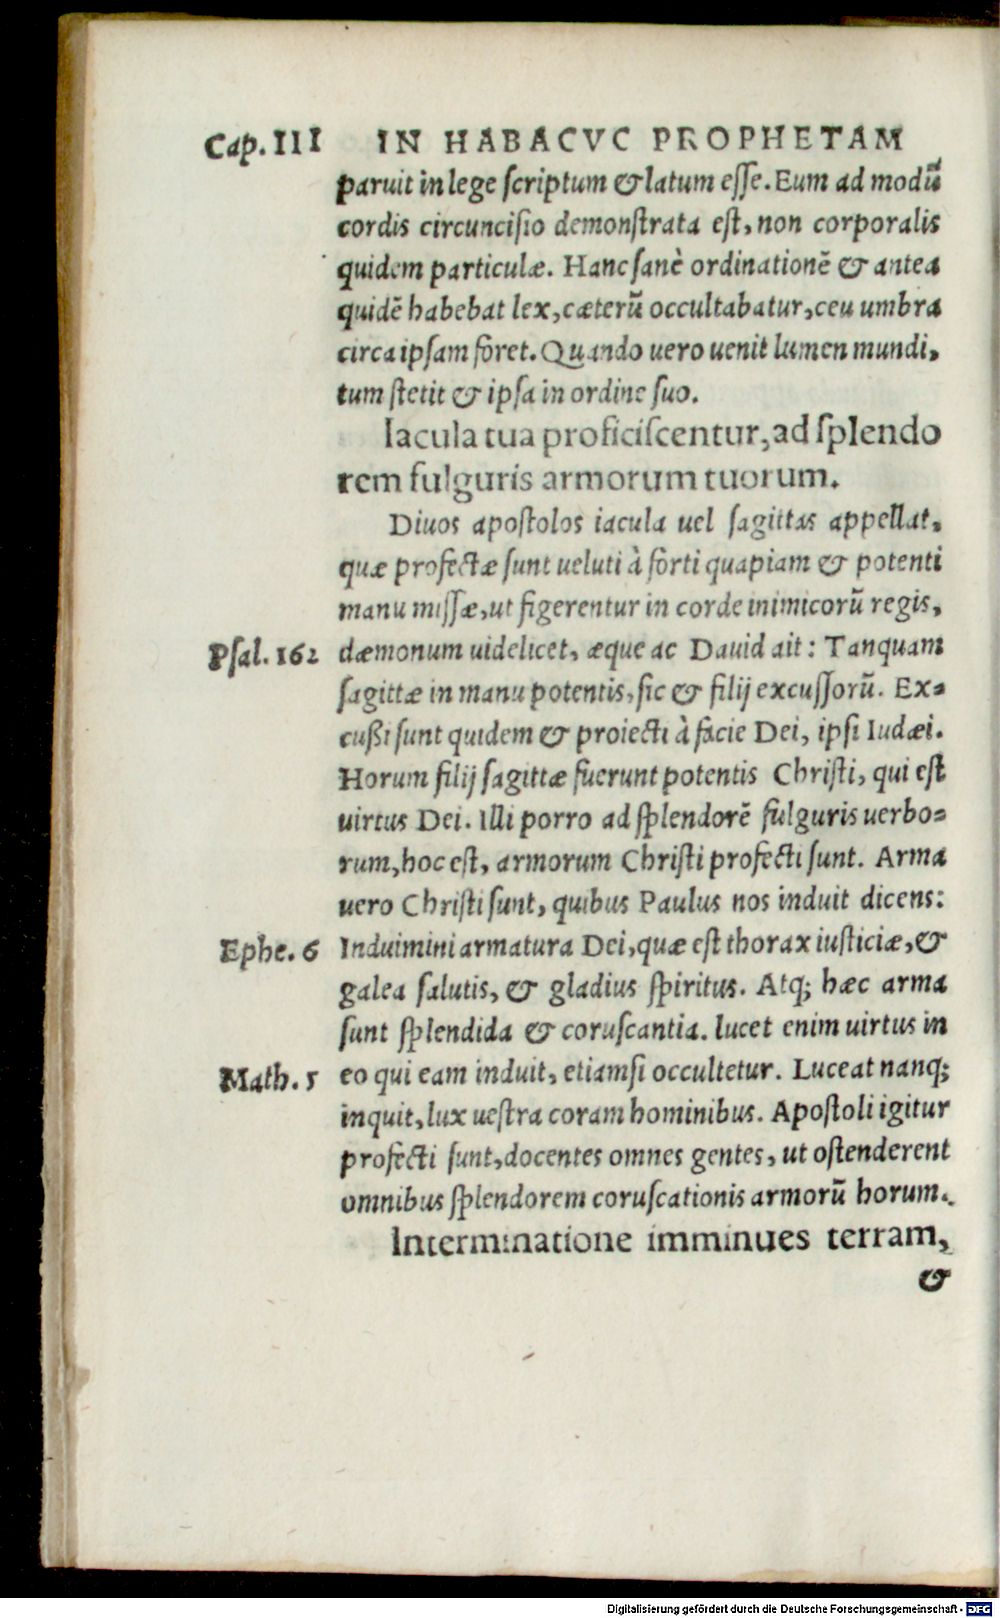 Cap. III IN HABACVC PROPHETAM
paruit in lege scriptum & latum esse. Eum ad modũ
cordis circuncisio demonstrata est, non corporalis
quidem particulæ. Hanc sanè ordinationẽ & antea
quidẽ habebat lex, cæterũ occultabatur, ceu umbra
circa ipsam foret. Quando uero uenit lumen mundi,
tum stetit & ipsa in ordine suo.
Iacula tua proficiscentur, ad splendo
rem fulguris armorum tuorum.
Diuos apostolos iacula uel sagittas appellat,
quæ profectæ sunt ueluti à forti quapiam & potenti
manu missæ, ut figerentur in corde inimicorũ regis,
Psal. 162 dæmonum uidelicet, æque ac Dauid ait: Tanquam
sagittæ in manu potentis, sic & filij excussorũ. Ex-
cußi sunt quidem & proiecti à facie Dei, ipsi Iudæi.
Horum filij sagittæ fuerunt potentis Christi, qui est
uirtus Dei. Illi porro ad splendorẽ fulguris uerbo-
rum, hoc est, armorum Christi profecti sunt. Arma
uero Christi sunt, quibus Paulus nos induit dicens:
Ephe. 6 Induimini armatura Dei, quæ est thorax iusticiæ, &
galea salutis, & gladius spiritus. Atq; hæc arma
sunt splendida & coruscantia. lucet enim uirtus in
Math. 5 eo qui eam induit, etiamsi occultetur. Luceat nanq;
inquit, lux uestra coram hominibus. Apostoli igitur
profecti sunt, docentes omnes gentes, ut ostenderent
omnibus splendorem coruscationis armorũ horum.
Interminatione imminues terram,
&
Digitalisierung gefördert durch die Deutsche Forschungsgemeinschaft - DFG